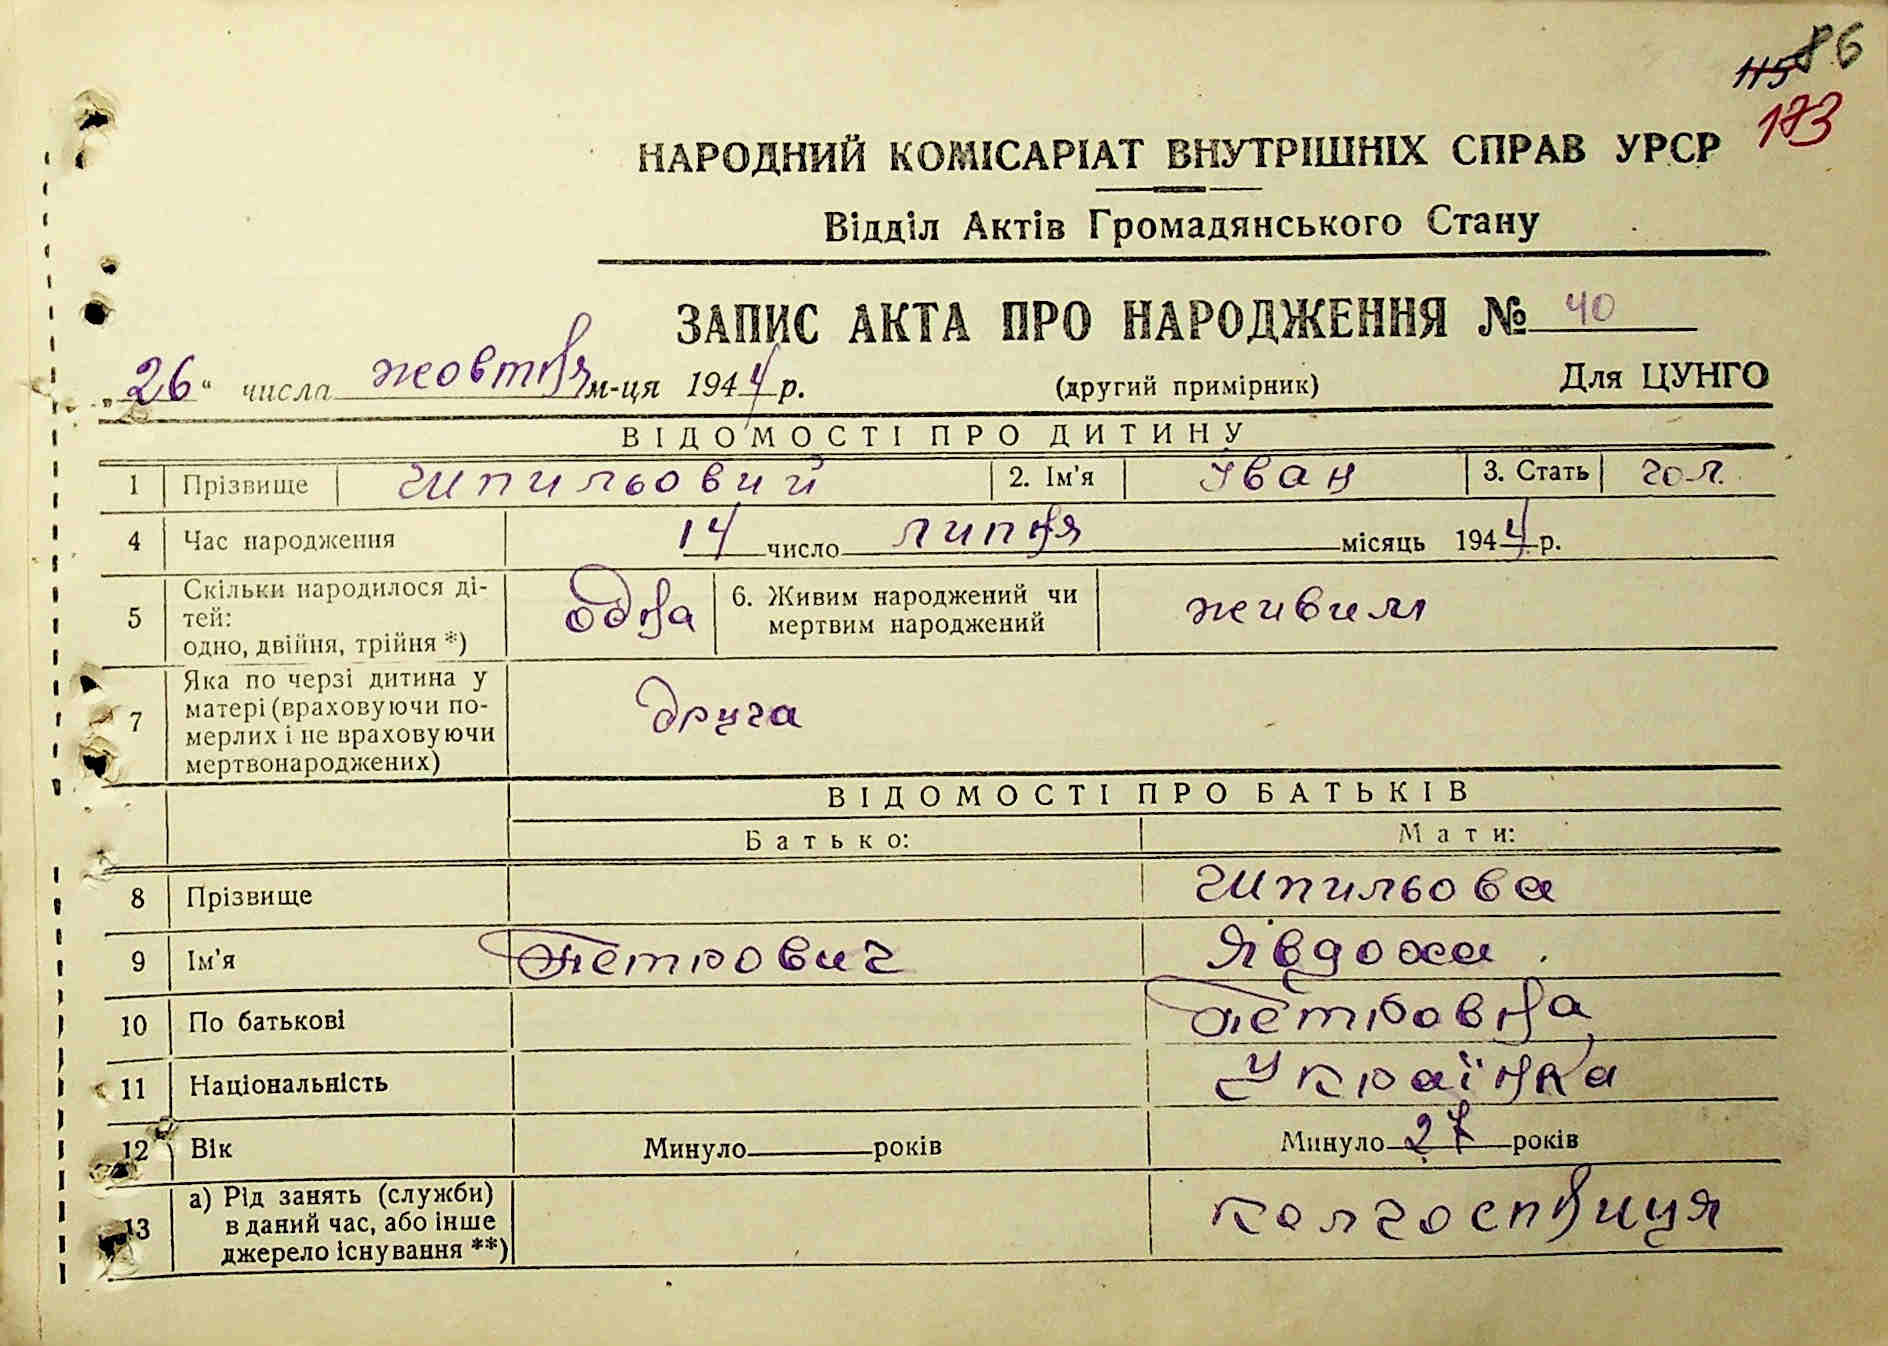 86
115
173
НАРОДНИЙ КОМІСАРІАТ ВНУТРІШНІХ СПРАВ УРСР
Відділ Актів Громадянського Стану
ЗАПИС АКТА ПРО НАРОДЖЕННЯ № 40
„26“ числа жовтня м-ця 1944 р. (другий примірник) Для ЦУНГО
ВІДОМОСТІ ПРО ДИТИНУ
1 Прізвище Шпильовий 2. Ім'я Іван 3. Стать чол.
4 Час народження 14 число липня місяць 1944 р.
5 Скільки народилося ді-
тей:
одно, двійня, трійня *) одна 6. Живим народжений чи
мертвим народжений живим
7 Яка по черзі дитина у
матері (враховуючи по-
мерлих і не враховуючи
мертвонароджених) друга
ВІДОМОСТІ ПРО БАТЬКІВ
Батько: Мати:
8 Прізвище Шпильова
9 Ім'я Петрович Явдоха
10 По батькові Петровна
11 Національність Українка
12 Вік Минуло років Минуло 27 років
13 а) Рід занять (служби)
в даний час, або інше
джерело існування **) колгоспниця